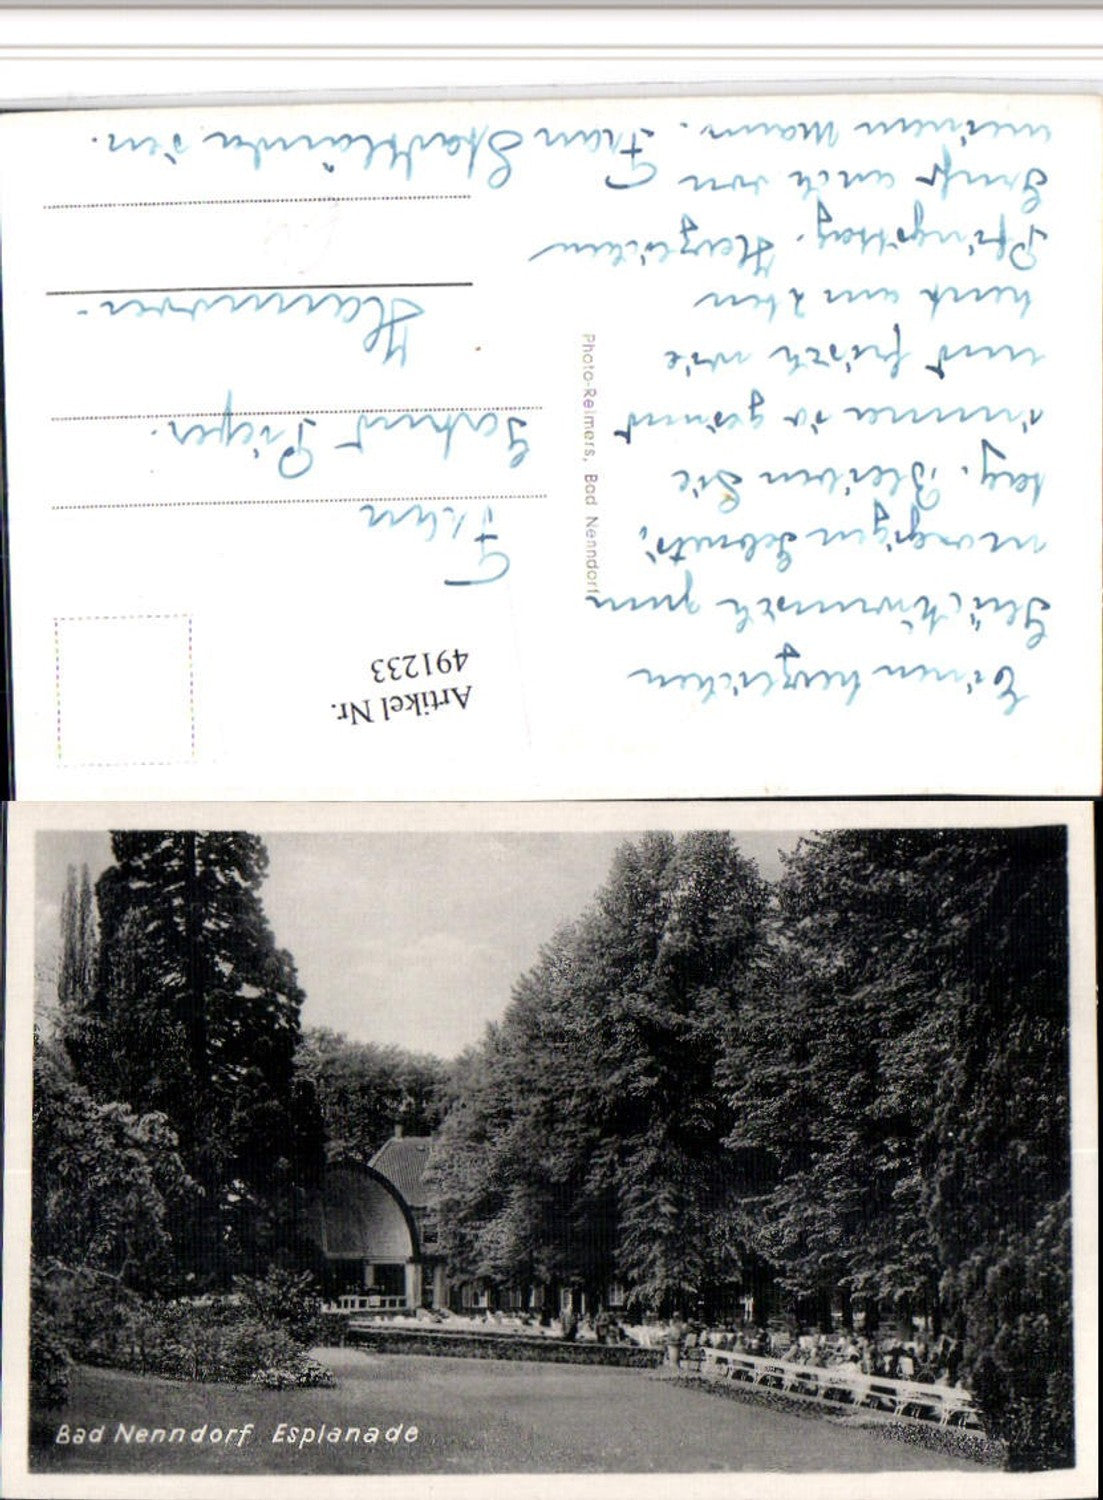 Einen herzlichen
Glückwunsch zum
morgigen Geburts,
tag. Bleiben Sie
immer so gesund
und frisch wie
heut am 2ten
Pfingsttag. Herzlichen
Gruß auch von
meinem Mann. Frau Stadtländer
Photo-Reimers, Bad Nenndorf
Artikel Nr.
491233
Gertrud Pieper.
Hannover-
Bad Nenndorf Esplanade